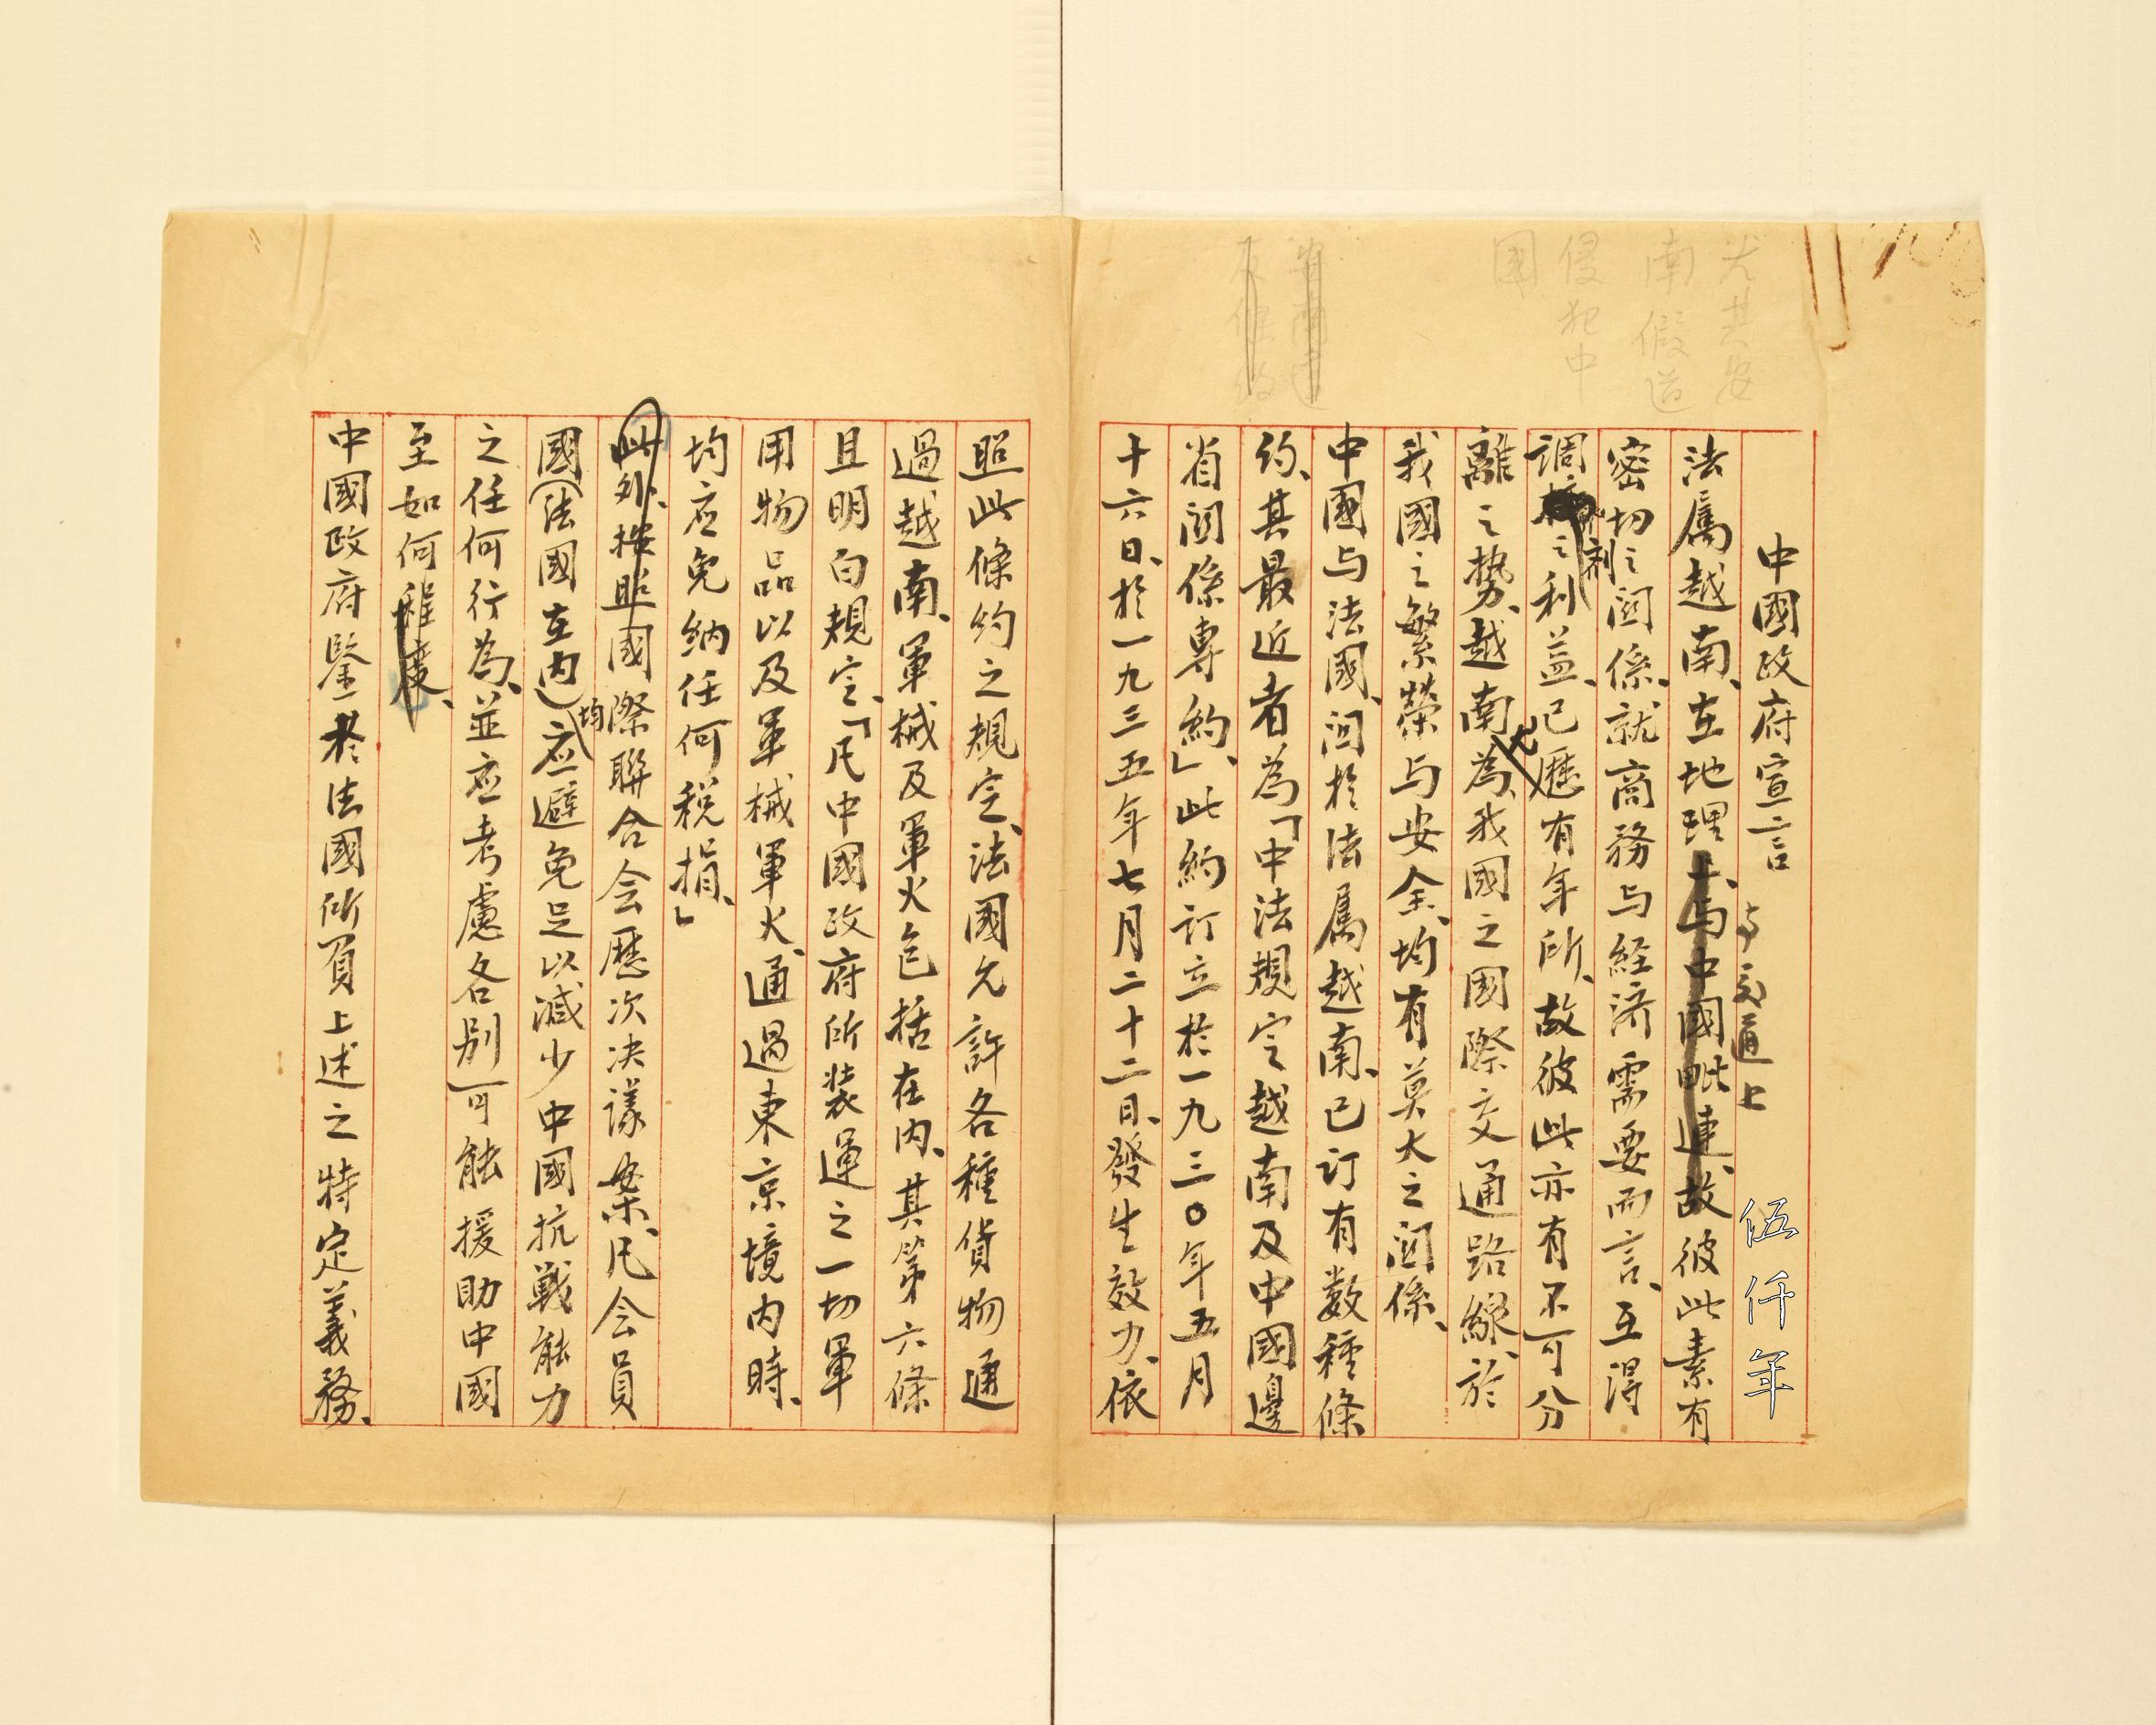 中國政府宣言
与交通上
伍仟年
法屬越南、在地理上、与中國毗連、故彼此素有
密切之関係、就商務与経済需要而言、互得
調劑之利益、已歷有年所、故彼此亦有不可分
離之势、越南尤為我國之國際交通路線、於
我國之繁榮与安全、均有莫大之関係、
中國与法國、関於法屬越南、已订有数種條
约、其最近者為「中法規定越南及中國邊
省関係專約」、此約订立於一九三〇年五月
十六日、於一九三五年七月二十二日、發生效力、依
照此條約之規定、法國允許各種貨物通
過越南、軍械及軍火包括在內、其第六條
且明白規定、「凡中國政府所装運之一切軍
用物品以及軍械軍火、通過東京境內時、
均应免納任何税捐、」
此外、按照國際聯合会歷次决議案、凡会員
國(法國在內)均应避免足以減少中國抗戦能力
之任何行為、並应考慮各別可能援助中國
至如何程度、
中國政府鑒於法國所負上述之特定義務、
尤其安
南假道
侵犯中
國